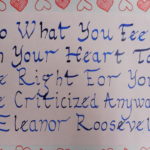 o What You Fee
n Your Heart To
e Right For You
e Criticized Anyway
Eleanor Roosevel